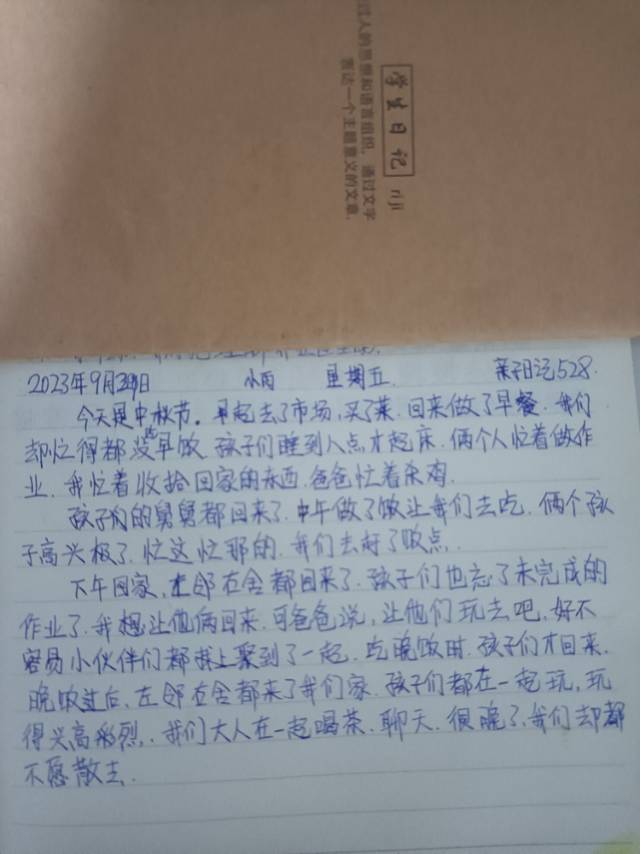 学生日记 riji
过人的思想和语言组织,通过文字
表达一个主题意义的文章.
2023年9月29日 小雨 星期五. 亲子日记528.
今天是中秋节。早起去了市场,买了菜.回来做了早餐.我们
却忙得都没吃早饭.孩子们睡到八点才起床.俩个人忙着做作
业.我忙着收拾回家的东西.爸爸忙着
孩子们的舅舅都回来了.中午做了饭让我们去吃.俩个孩
子高兴极了.忙这忙那的.我们去
下午回家,左邻右舍都回来了.孩子们也忘了未完成的
作业了.我想让他俩回来.可爸爸说,让他们玩去吧.好不
容易小伙伴们都碰上聚到了一起.吃晚饭时.孩子们才回来.
晚饭过后.左邻右舍都来了我们家.孩子们都在一起玩,玩
得兴高彩烈,.我们大人在一起喝茶.聊天.很晚了.我们却都
不愿散去.